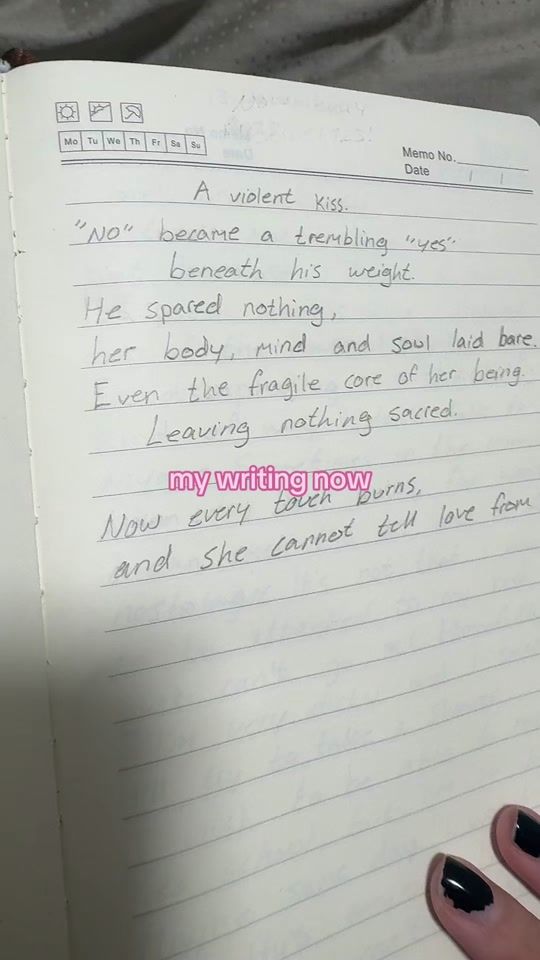 Mo Tu We Th Fr Sa Su
Memo No.
Date
A violent kiss.
"NO" became a trembling "yes"
beneath his weight.
He spared nothing,
her body, mind and soul laid bare.
Even the fragile core of her being.
Leaving nothing sacred.
my writing now
Now every touch burns,
and she cannot tell love from